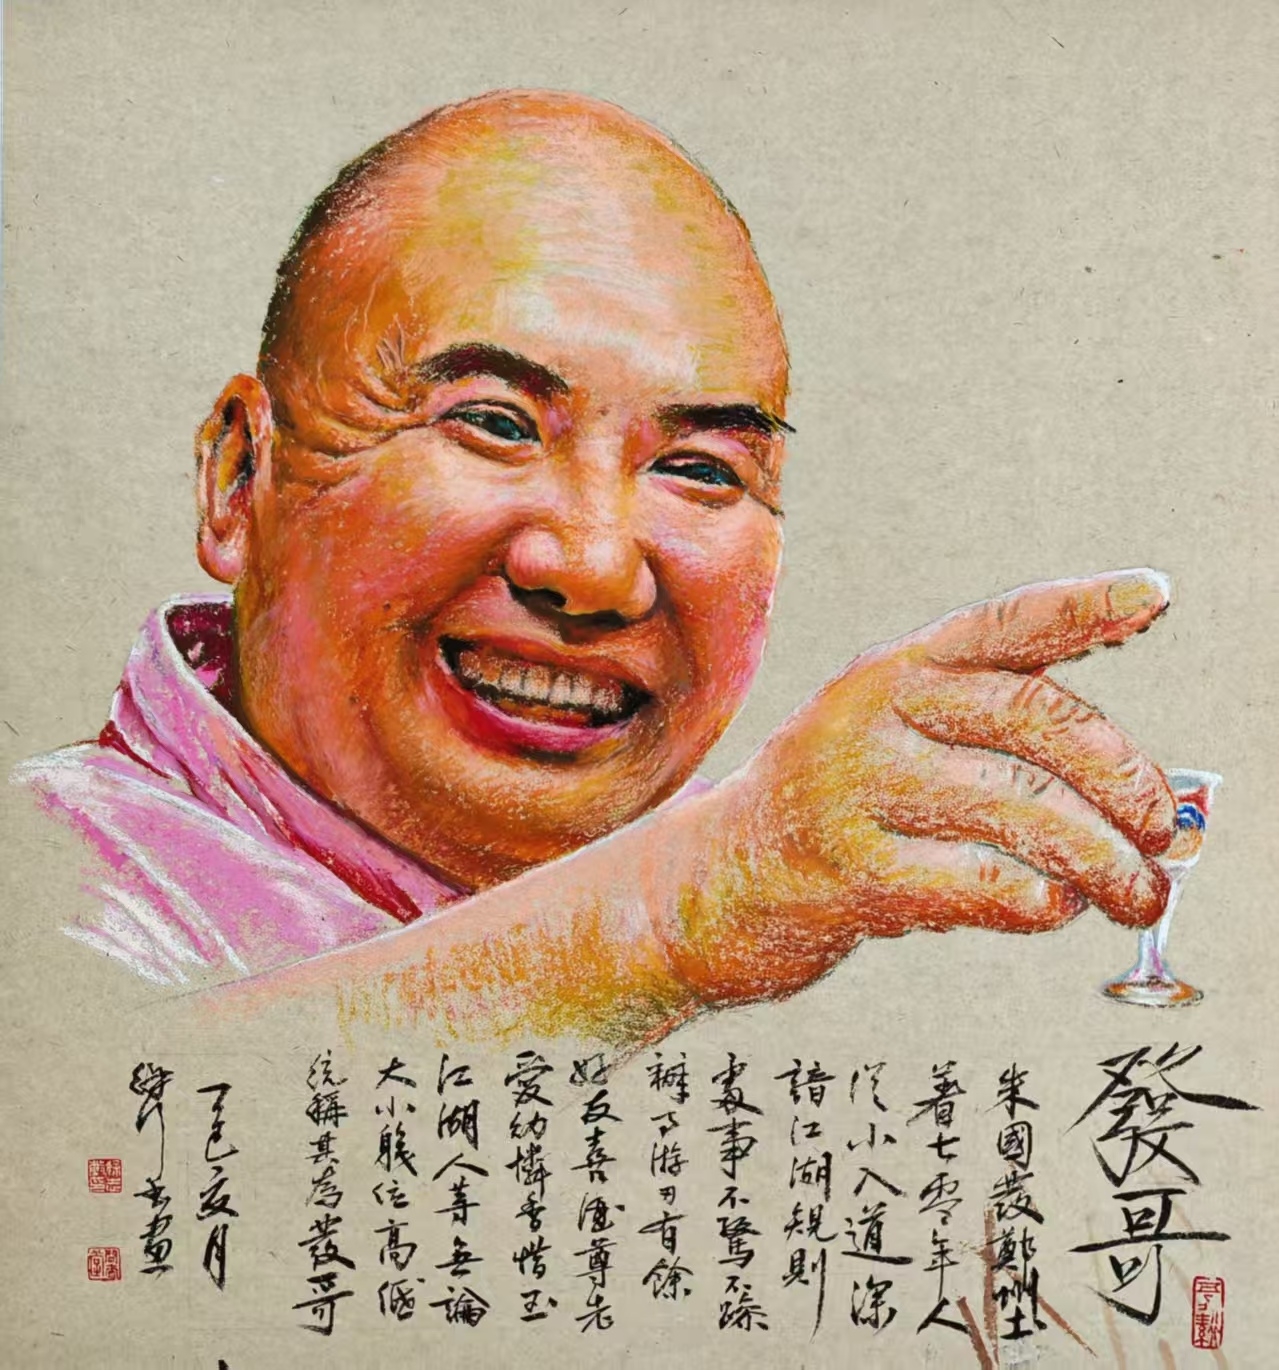 發哥
朱國發鄭州土
著七零年人
從小入道深
諳江湖規則
處事不驚不躁
辦事游刃有餘
好友喜酒尊老
愛幼憐香惜玉
江湖人等無論
大小職位高低
統稱其為發哥
乙巳亥月
書畫